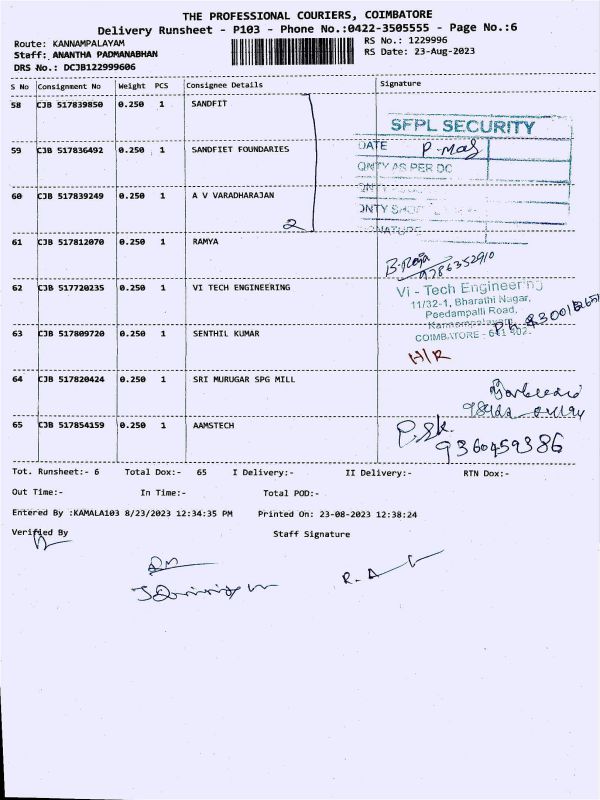 THE PROFESSIONAL COURIERS, COIMBATORE
Delivery Runsheet - P103 - Phone No.:0422-3505555 - Page No.:6
Route: KANNAMPALAYAM
RS No.: 1229996
Staff: ANANTHA PADMANABHAN
RS Date: 23-Aug-2023
DRS No.: DCJB122999606
S No Consignment No Weight PCS Consignee Details Signature
58 CJB 517839850 0.250 1 SANDFIT
SFPL SECURITY
59 CJB 517836492 0.250 1 SANDFIET FOUNDARIES
DATE
QNTY AS PER DC
60 CJB 517839249 0.250 1 A V VARADHARAJAN
2
61 CJB 517812070 0.250 1 RAMYA
B.Roja
9786352910
62 CJB 517720235 0.250 1 VI TECH ENGINEERING
Vi - Tech Engineering
11/32-1, Bharathi Nagar,
Peedampalli Road,
Kannampalayam,
COIMBATORE - 641 402.
63 CJB 517809720 0.250 1 SENTHIL KUMAR
H/R
64 CJB 517820424 0.250 1 SRI MURUGAR SPG MILL
65 CJB 517854159 0.250 1 AAMSTECH
9360459386
Tot. Runsheet:- 6 Total Dox:- 65 I Delivery:- II Delivery:- RTN Dox:-
Out Time:- In Time:- Total POD:-
Entered By :KAMALA103 8/23/2023 12:34:35 PM Printed On: 23-08-2023 12:38:24
Verified By Staff Signature